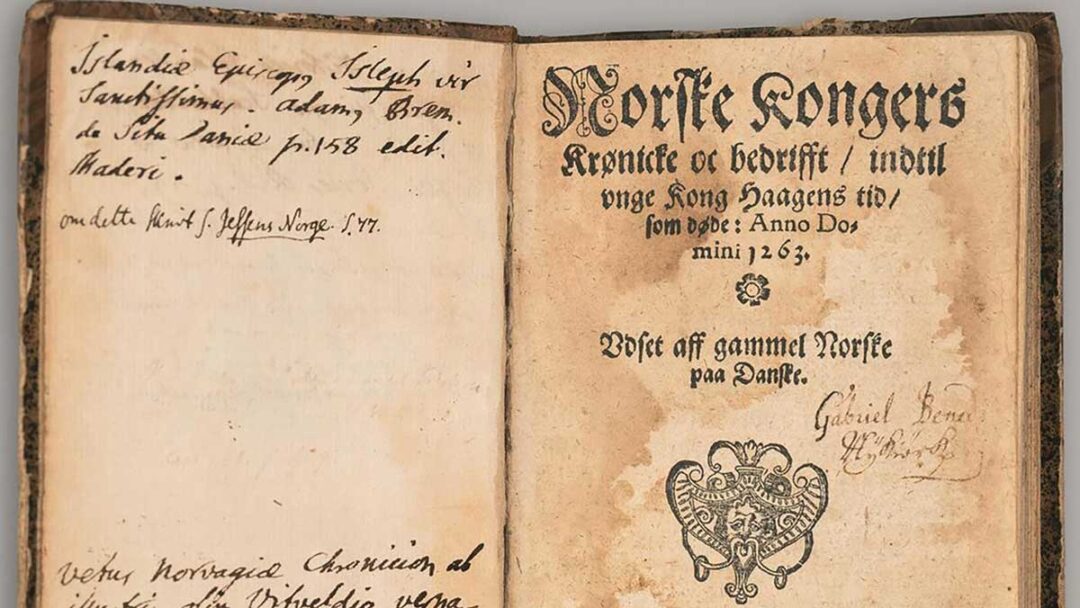 Islandiæ Episcopꝰ Isleph vir
Sanctissimus. Adamꝰ Brem.
de Situ Daniæ p. 158 edit.
Maderi.
om dette Skrivt s. Jessens Norge. S. 77.
vetus Norvagiæ Chronicon ab
Norske Kongers
Krønicke oc bedrifft / indtil
vnge Kong Haagens tid /
som døde: Anno Do⸗
mini 1263.
Vdset aff gammel Norske
paa Danske.
Gabriel